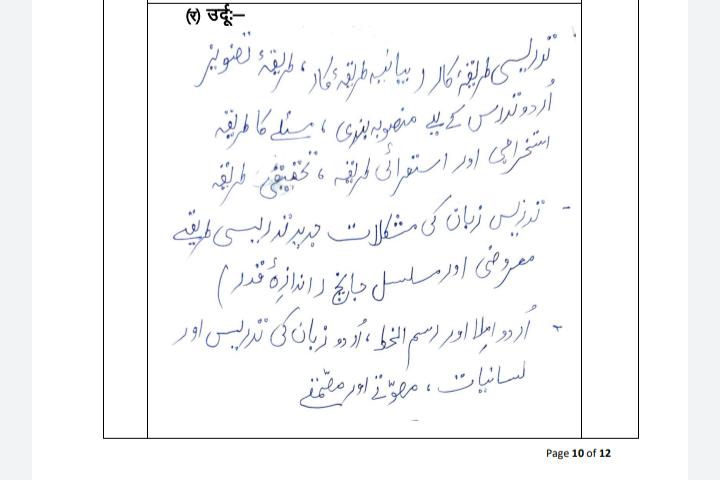 (र) उर्दूः–
تدریسی طریقۂ کار (بیانیہ طریقۂ کار، طریقۂ
اُردو تدریس کے لیے منصوبہ بندی، مسئلے کا طریقہ
استخراجی اور استقرائی طریقہ، تحقیقی طریقہ
- تدریس زبان کی مشکلات جدید تدریسی طریقے
معروضی اور مسلسل جانچ (اندازۂ قدر)
- اُردو املا اور رسم الخط، اُردو زبان کی تدریس اور
لسانیات، مصوّتے اور مصمّتے
Page 10 of 12